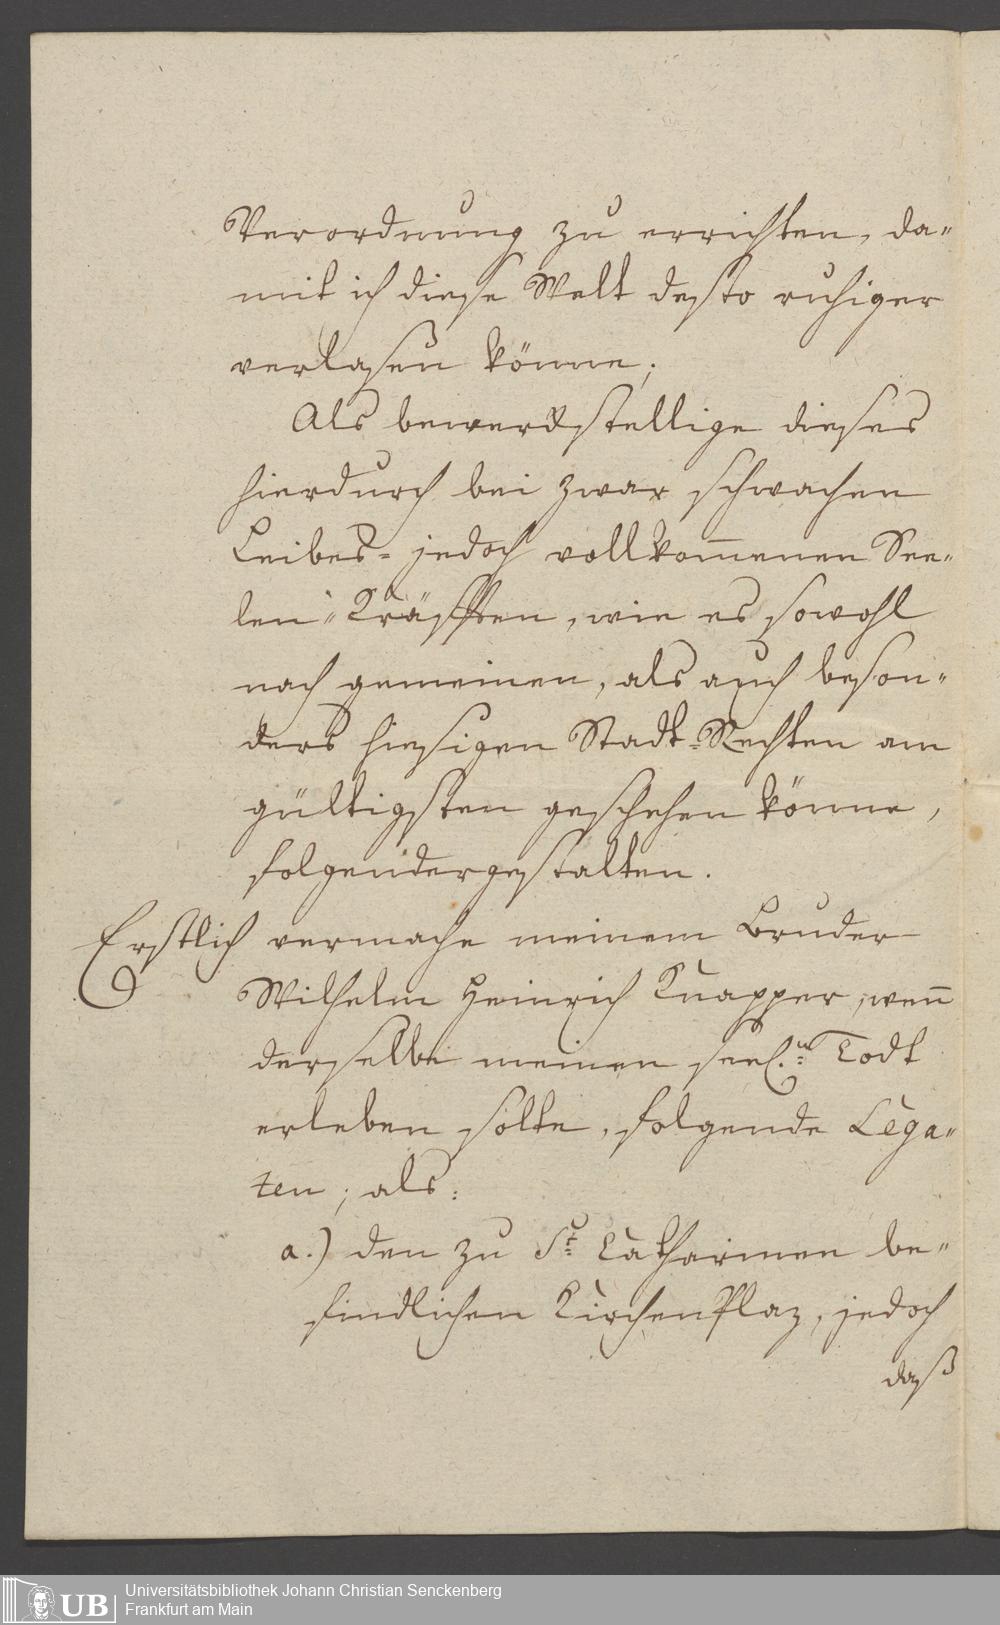 Verordnung zu errichten, da-
mit ich diese Welt desto ruhiger
verlasen könne;
Als bewerckstellige dieses
hierdurch bei zwar schwachen
Leibes- jedoch vollkom̅enen See-
len-Kräfften, wie es sowohl
nach gemeinen, als auch beson-
ders hiesigen Stadt-Rechten am
gültigsten geschehen könne,
folgendergestalten.
Erstlich vermache meinem Bruder
Wilhelm Heinrich Knapper, wen̅
derselbe meinen seel.n Todt
erleben solte, folgende Lega-
ten; als:
a.) den zu St. Catharinen be-
findlichen Kirchen Plaz, jedoch
daß
UB Universitätsbibliothek Johann Christian Senckenberg
Frankfurt am Main